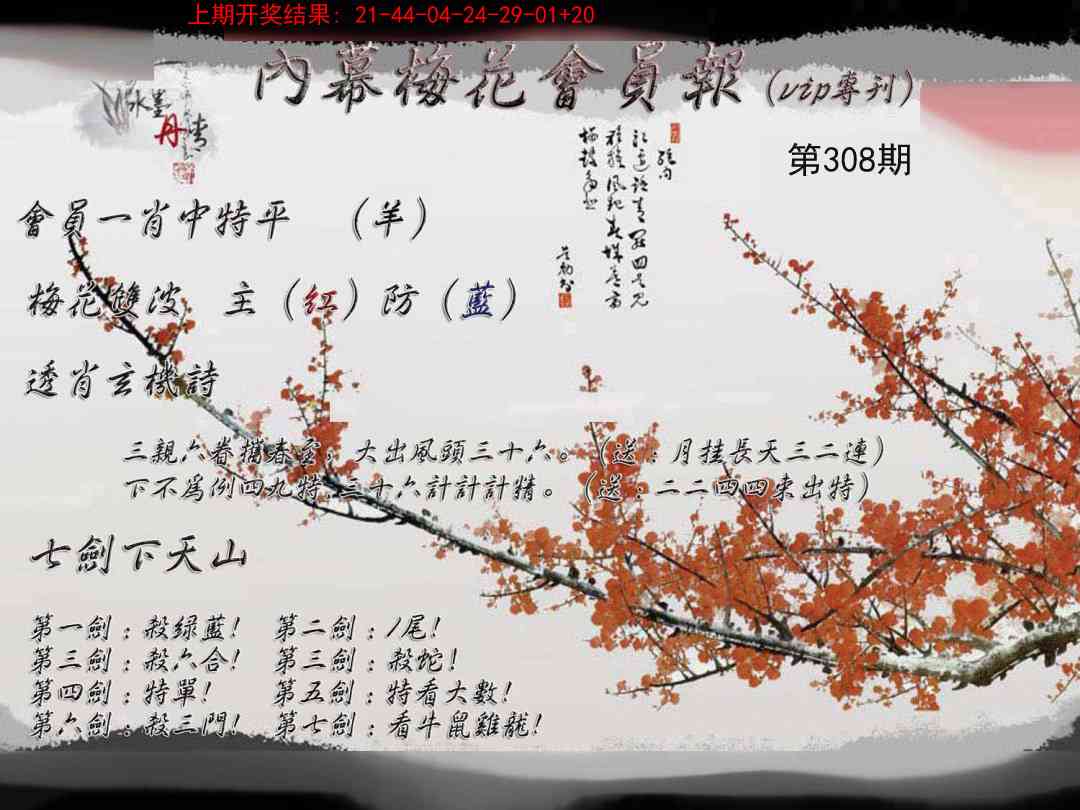 上期开奖结果：21-44-04-24-29-01+20
內幕梅花會員報（vip專刊）
水墨
丹青
第308期
會員一肖中特平　（羊）
梅花雙波　主（紅）防（藍）
透肖玄機詩
三親六眷攜春空，大出風頭三十六。（送：月挂長天三二連）
下不為例四九特,三十六計計計精。（送：二二四四来出特）
七劍下天山
第一劍：殺绿藍！ 第二劍：1尾！
第三劍：殺六合！ 第三劍：殺蛇！
第四劍：特單！ 第五劍：特看大數！
第六劍：殺三門！ 第七劍：看牛鼠雞龍！